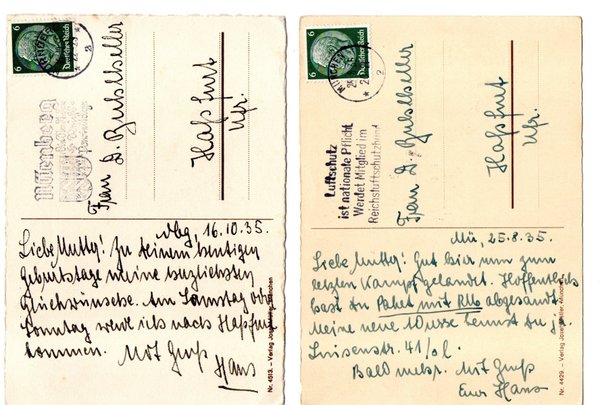 Deutsches Reich
6
6
Nürnberg
Frau D. Bubelseller
Haßfurt
Ufr.
Nbg, 16.10.35.
Liebe Mutter! Zu deinem heutigen
Geburtstage meine herzlichsten
Glückwünsche. Am Samstag oder
Sonntag werde ich nach Haßfurt
kommen. Mit Gruß
Hans
Nr. 4513. – Verlag Josef München
Deutsches Reich
6
6
Luftschutz
ist nationale Pflicht
Werdet Mitglied im
Reichsluftschutzbund
Frau D. Bubelseller
Haßfurt
Ufr.
Mü, 25.8.35.
Liebe Mutter! Gut bin ich zum
letzten Kampf gelandet. Hoffentlich
hast du Paket mit abgesandt.
Meine neue Adresse kennst du ja.
Luisenstr. 41/0l.
Bald mehr. Mit Gruß
Euer Hans
Nr. 4429. – Verlag Josef München